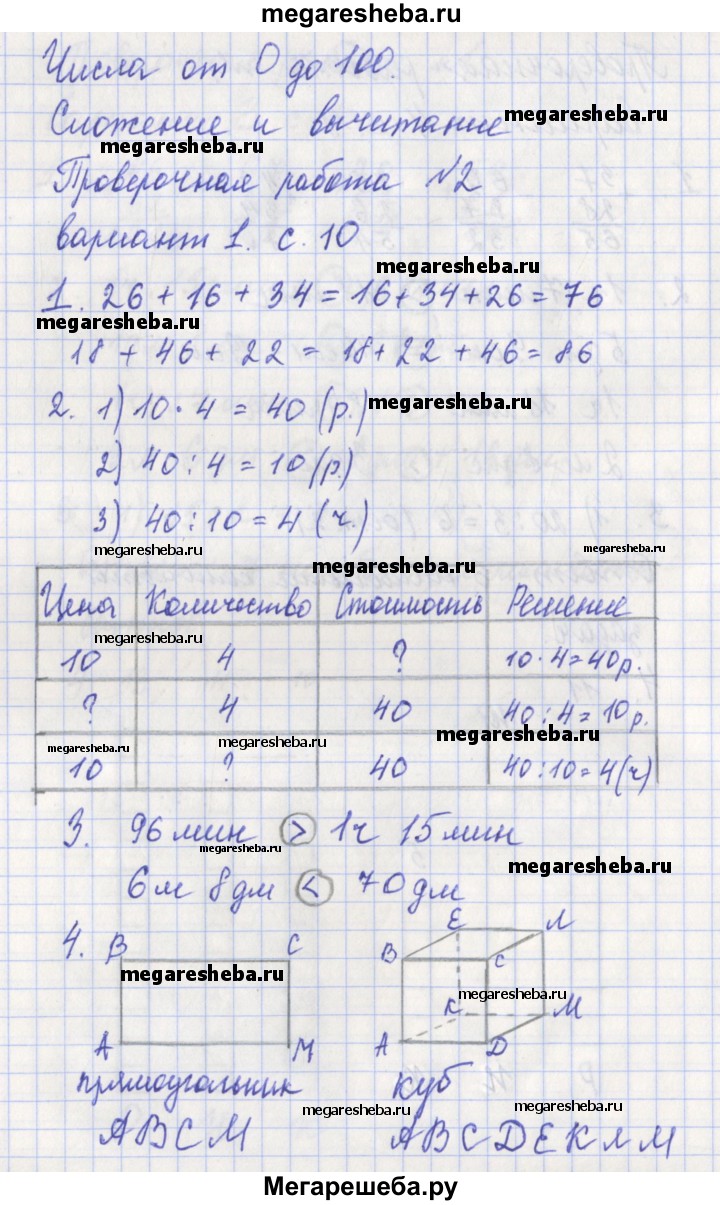 megaresheba.ru
Числа от 0 до 100.
Сложение и вычитание
megaresheba.ru
megaresheba.ru
Проверочная работа №2
вариант 1. с. 10
megaresheba.ru
1. 26 + 16 + 34 = 16 + 34 + 26 = 76
megaresheba.ru
18 + 46 + 22 = 18 + 22 + 46 = 86
2. 1) 10 · 4 = 40 (р.)
megaresheba.ru
2) 40 : 4 = 10 (р.)
3) 40 : 10 = 4 (ч.)
megaresheba.ru
megaresheba.ru
megaresheba.ru
Цена Количество Стоимость Решение
megaresheba.ru
10 4 ? 10 · 4 = 40 р.
? 4 40 40 : 4 = 10 р.
megaresheba.ru
megaresheba.ru
megaresheba.ru
10 ? 40 40 : 10 = 4 (ч)
3. 96 мин > 1ч 15 мин
megaresheba.ru
megaresheba.ru
6м 8дм < 70 дм
4. B C
E Л
B C
megaresheba.ru
megaresheba.ru
K M
A M
A D
прямоугольник куб
megaresheba.ru
megaresheba.ru
ABCM ABCDEKЛM
Мегарешеба.ру